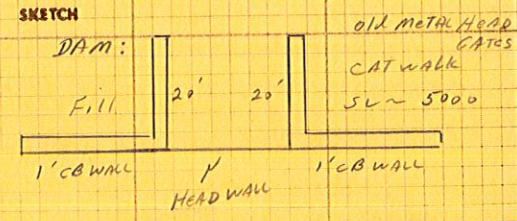 SKETCH
DAM:
old METAL HEAD
GATES
CATWALK
SV ~ 5000
Fill
20'
20'
1' CB WALL
HEADWALL
1' CB WALL